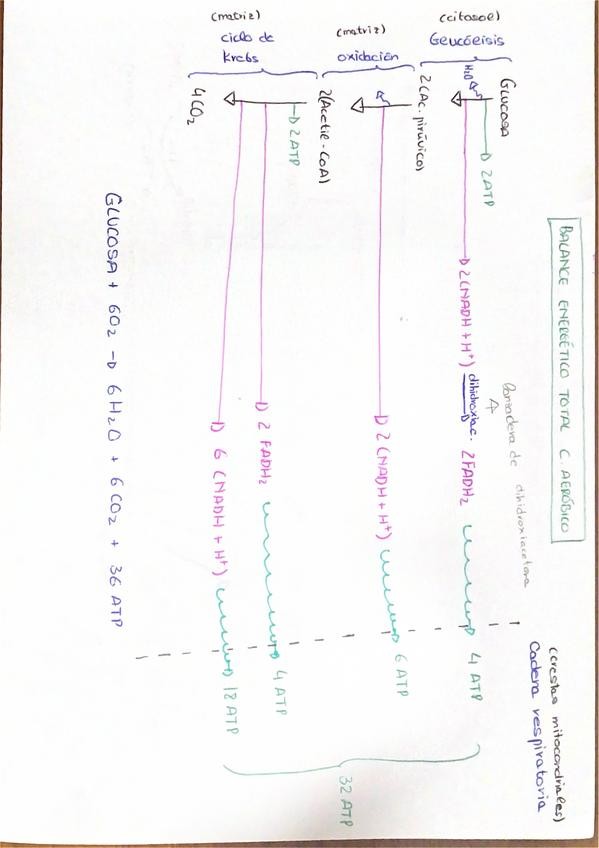 BALANCE ENERGÉTICO TOTAL C. AERÓBICO
(crestas mitocondriales)
Cadena respiratoria
(citosol)
Glucólisis
GLUCOSA
2 ATP
H₂O
2 (NADH + H⁺)
dihidroxiac.
2 FADH₂
Lanzadera de dihidroxiacetona
4 ATP
2 (Ac. pirúvico)
(matriz)
oxidación
2 (NADH + H⁺)
6 ATP
2 (Acetil-CoA)
(matriz)
ciclo de
Krebs
2 ATP
2 FADH₂
4 ATP
6 (NADH + H⁺)
18 ATP
4 CO₂
32 ATP
GLUCOSA + 6O₂ → 6H₂O + 6CO₂ + 36 ATP